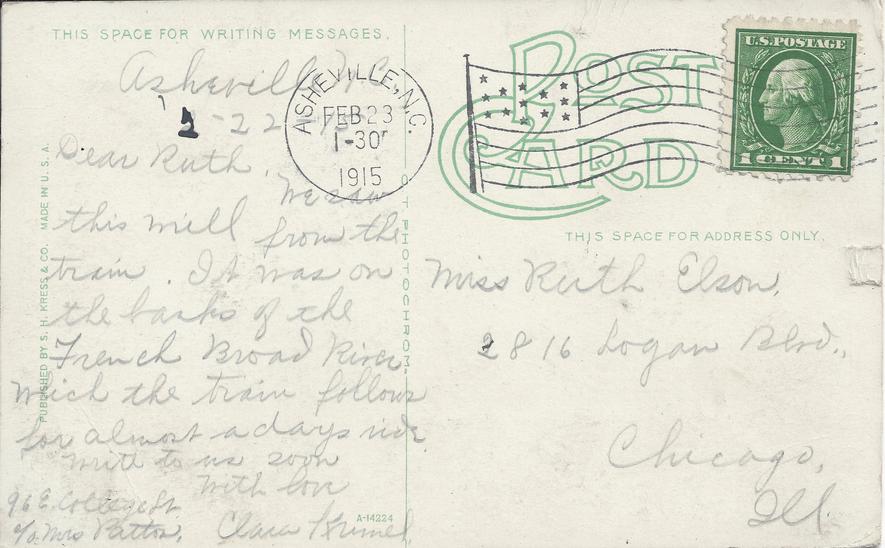 THIS SPACE FOR WRITING MESSAGES.
Asheville, N.C.
2-22-15
Dear Ruth.
We saw
this mill from the
train. It was on
the banks of the
French Broad River
wich the train follows
for almost a days ride
write to us soon
With love
96 E. College St.
c/o Mrs Patton.
Clara
PUBLISHED BY S. H. KRESS & CO. MADE IN U. S. A.
PHOTOCHROM
A-14224
ASHEVILLE, N.C.
FEB 23
1-30P
1915
POST
CARD
U.S. POSTAGE
1 CENT 1
THIS SPACE FOR ADDRESS ONLY.
Miss Ruth Elson,
2816 Logan Blvd.,
Chicago,
Ill.